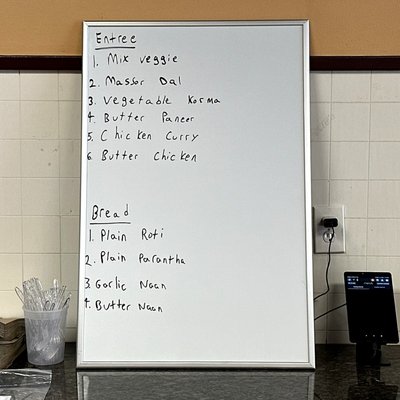 Entree
1. Mix veggie
2. Massor Dal
3. Vegetable Korma
4. Butter Paneer
5. Chicken Curry
6 Butter Chicken
Bread
1. Plain Roti
2. Plain Parantha
3. Garlic Naan
4. Butter Naan